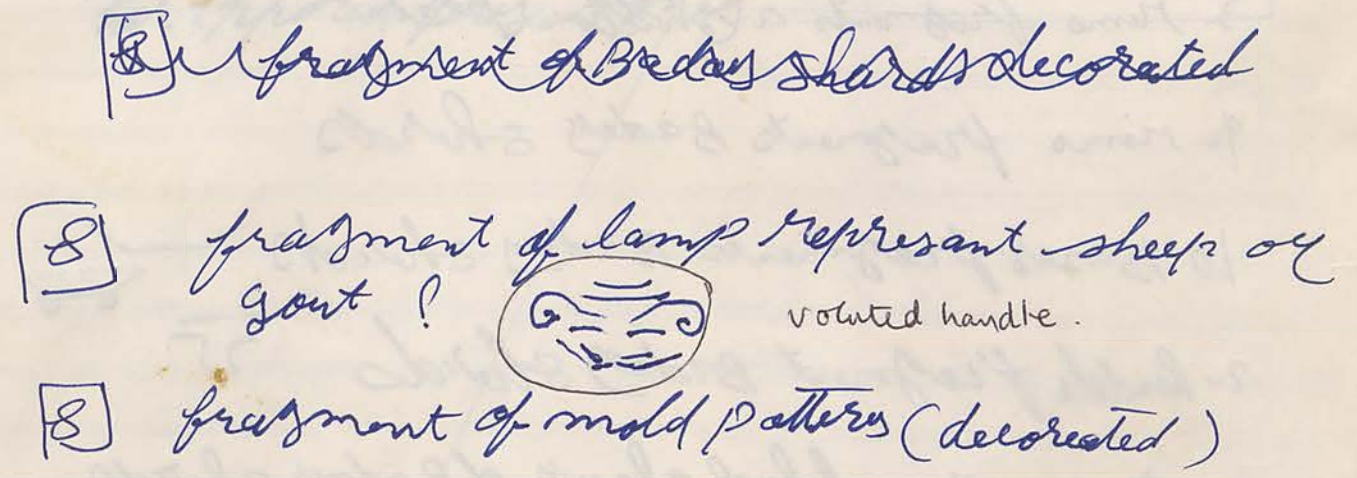 8 fragment of Bodys shards decorated
8 fragment of lamp represant sheep or
gout ?
voluted handle.
8 fragment of mold pottery (decoreated)